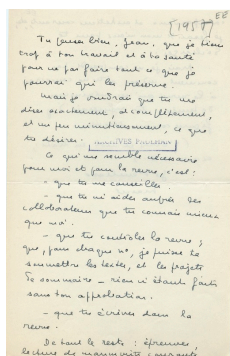 EE
[195?]
Tu penses bien, Jean, que je tiens
trop à ton travail et à ta santé
pour ne pas faire tout ce que je
pourrai qui les préserve.
Mais je voudrais que tu me
dises exactement, et complètement,
et un peu minutieusement, ce que
tu désires.
ARCHIVES PAULHAN
Ce qui me semble nécessaire
pour moi et pour la revue, c'est :
- que tu me conseilles.
- que tu m'aides auprès des
collaborateurs que tu connais mieux
que moi.
- que tu contrôles la revue ;
que, pour chaque n°, je puisse te
soumettre les textes, et les projets
de sommaire - rien n'étant fait
sans ton approbation.
- que tu écrives dans la
revue.
De tout le reste : épreuves,
lecture de manuscrits courants